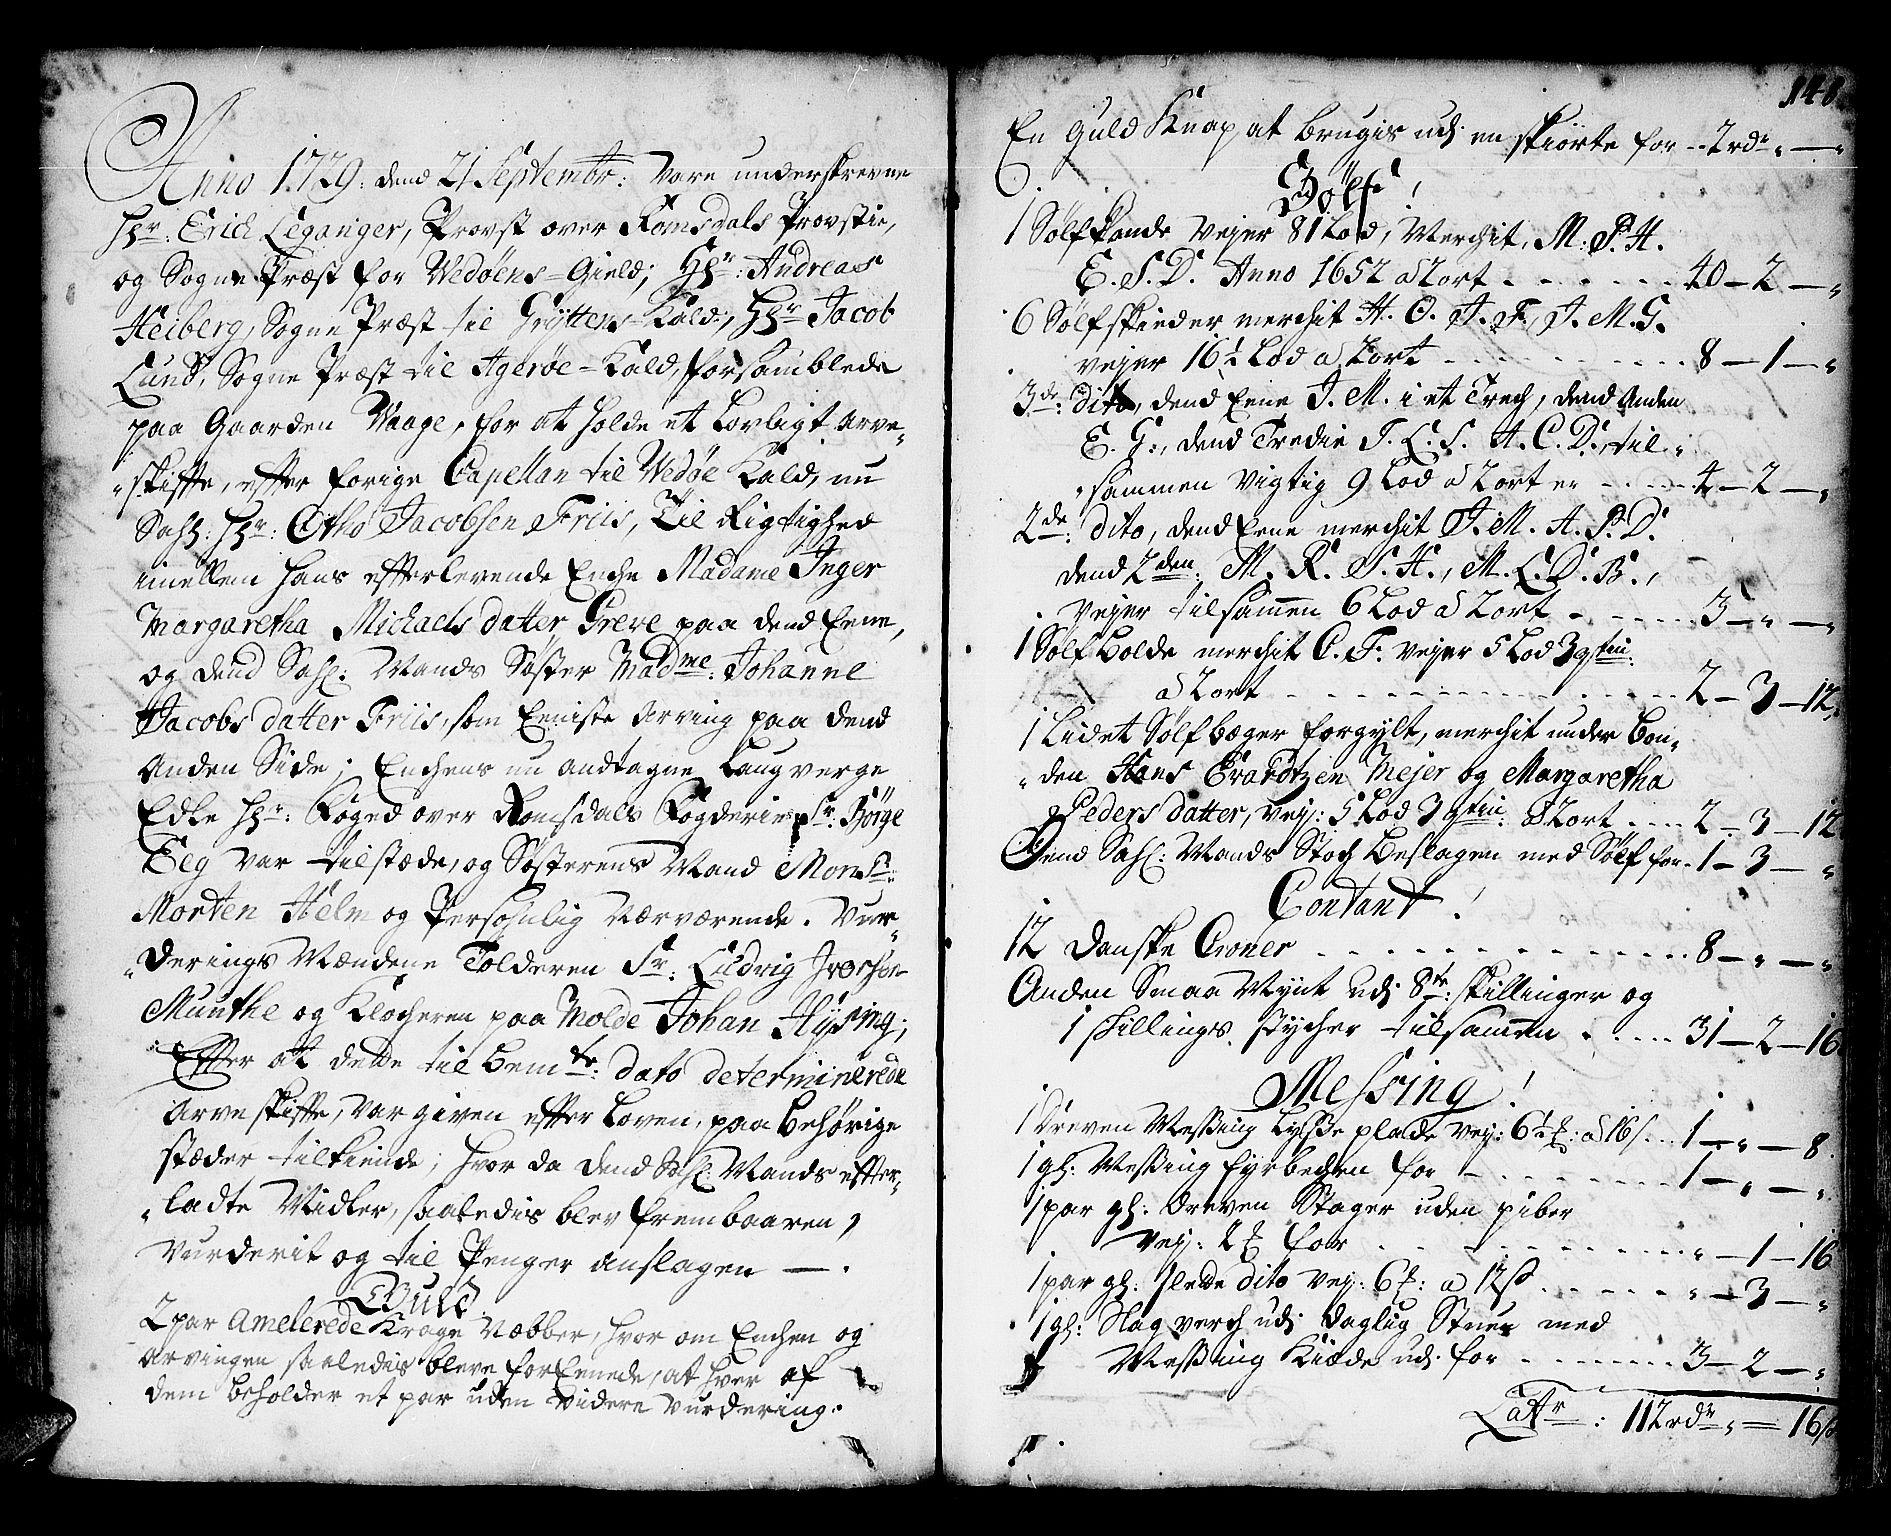 Anno 1729: dend 21 Septembr: Vare underskrevne
Hr: Erich Leganger, Provst over Romsdals Provstie,
og Sogne Præst for Wedøens-Gield; Hr: Andreas
Heiberg, Sogne Præst til Gryttens-Kald, Hr Jacob
Lund, Sogne Præst til Agerøe-Kald, forsamblede
paa Gaarden Waage, for at holde et Lovligt arve-
skiffte, effter forige Capellan til Wedøe Kald, nu
Sahl: Hr: Otho Jacobsen Friis, Til Rigtighed
imellem hans effterlevende Enche Madame Inger
Margaretha Michaels datter Greve paa dend Eene,
og dend Sahl: Mands Søster Madme: Johanne
Jacobs datter Friis, som Eeniste Arving paa dend
Anden Side; Enchens nu andtagne Laugverge
Edle Hr: Foged over Romsdals Fogderie Sr: Børge
Eeg var tilstæde, og Søsterens Mand Monsr:
Morten Helm og Persohnlig Nærværende. Vur-
derings Mændene Tolderen Sr: Ludvig Iversen
Munthe og Klocheren paa Molde Johan Hysing;
Effter at dette til bemte: dato determinerede
Arve skiffte, var given effter Loven, paa behørige
stæder tilkiende; hvor da dend Sahl: Mands effter-
ladte Midler, saaledis blev frembaaren,
Vurderit og til Penger anslagen —.
Guld
2 par Amelerede Krage Næbber, hvor om Enchen og
Arvingen saaledis bleve forEenede, at hver af
dem beholder et par uden videre Vurdering.
148
En Guld Knap at brugis udj en skiorte for -- 2 rdr „ — „
Sølf!
1 Sølfkande vejer 81 Lod, Merchit, M. P. H.
E. S. D. Anno 1652 a 2 ort . . . . . . 40 — 2 — „
6 Sølfskieder merchit H. O. J. F., J. M. G.
vejer 16½ Lod a 2 ort . . . . . . . . . 8 — 1 — „
3de: dito, dend Eene J. M. i et Trech, dend Anden
E. G:, dend Tredie J. L. S. A. C. D. til-
sammen vigtig 9 Lod a 2 ort er . . . . . 4 — 2 — „
2de: dito, dend Eene merchit J. M. A. P. D.
dend 2den: M. R. S. H., M. L. D. B.,
vejer tilsamen 6 Lod a 2 ort . . . . . . 3 — „ — „
1 Sølf Bolde merchit O. F. vejer 5 Lod 3 qtin:
a 2 ort . . . . . . . . . . . . . . . 2 — 3 — 12
1 Lidet Sølfbæger forgylt, merchit under Bon-
den Hans Evardtzen Mejer og Margaretha
Peders datter, vej: 5 Lod 3 qtin: a 2 ort . . . . 2 — 3 — 12
Dend Sahl: Mands Stoch Beslagen med Sølf for . 1 — 3 — „
Contant!
12 Danske Croner . . . . . . . . . . . . . 8 — „ — „
Anden Smaa Mynt udj 8te: skillinger og
1 skillings stycher tilsammen . . . . . 31 — 2 — 16
Messing!
1 Dreven Messing Lysse plade vej: 6½ ℔: a 16 s . . 1 — „ — 8
1 gl: Messing fyrbechen for . . . . . . . . . 1 — „ — „
1 par gl: Dreven Stager uden piber
vej: 2 ℔ for . . . . . . . . . . . . . . „ — 1 — 16
1 par gl: slette dito vej: 6 ℔: a 12 s . . . . . . „ — 3 — „
1 gl: Slag verch udj Daglig Stuen med
Messing Kiæde udj for . . . . . . . . 3 — 2 — „
Latr: 112 rdr „ = 16 s